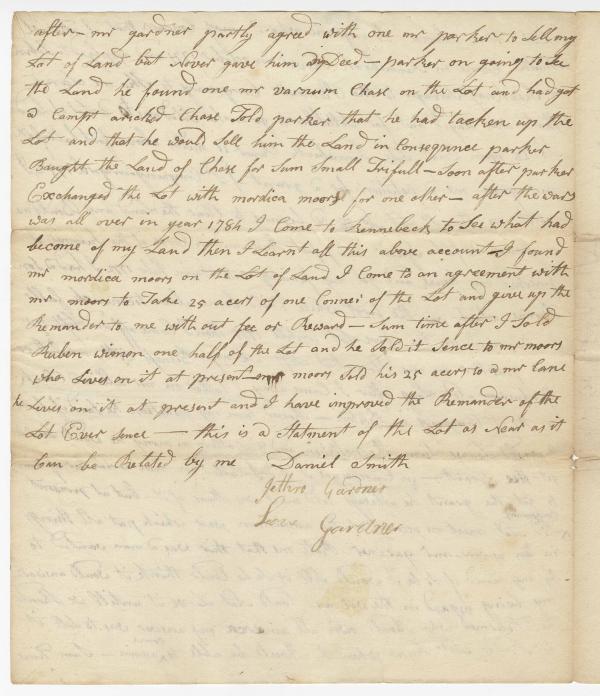 after - mr gardner partly agreed with one mr parker to Sell my
Lot of Land but Never gave him Deed - parker on going to See
the Land he found one mr varnum Chase on the Lot and had got
a Camp Chase Told parker that he had tacken up the
Lot and that he would Sell him the Land in Consequnce parker
Baught the Land of Chase for Sum Small Trifull - Soon after parker
Exchanged the Lot with mordica moors for one other - after the wars
was all over in year 1784 I Come to Kennebeck to See what had
become of my Land then I Learnt all this above account - I found
mr mordica moors on the Lot of Land I Come to an agreement with
mr moors to Take 25 acers of one Conner of the Lot and give up the
Remander to me with out fee or Reward - Sum time after I Sold
Ruben wimon one half of the Lot and he Sold it Sence to mr moors
who Lives on it at present - mr moors Sold his 25 acers to a mr lane
he Lives on it at present and I have improved the Remander of the
Lot Ever Sence - this is a Statment of the Lot as Near as it
Can be Related by me Daniel Smith
Jethro Gardner
Gardner